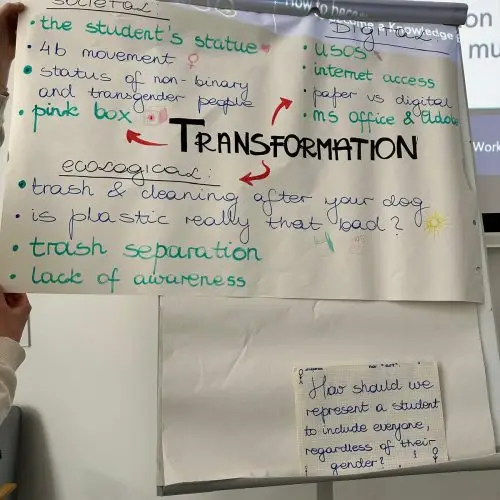 SOCIETAL
• the student's statue
• 4b movement
• status of non-binary
and transgender people
• pink box
DIGITAL
• USOS
• internet access
• paper vs digital
• MS Office &
TRANSFORMATION
ecological:
• trash & cleaning after your dog
• is plastic really that bad?
• trash separation
• lack of awareness
How should we
represent a student
to include everyone,
regardless of their
gender?
How to become a Knowledge
on
mu
Work